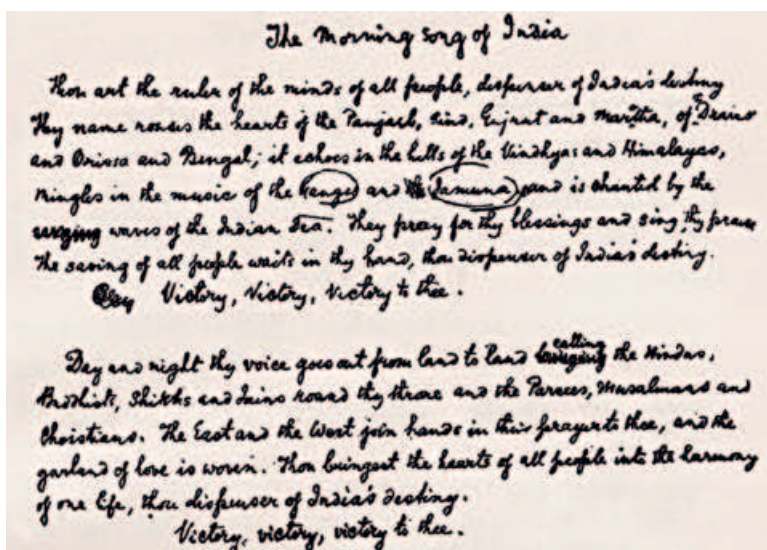 The Morning song of India
Thou art the ruler of the minds of all people, dispenser of India's destiny
Thy name rouses the hearts of the Panjab, Sind, Gujrat and Maratha, of Dravid
and Orissa and Bengal; it echoes in the hills of the Vindhyas and Himalayas,
mingles in the music of the Ganges and Jamuna and is chanted by the
surging waves of the Indian Sea. They pray for thy blessings and sing thy praise
The saving of all people waits in thy hand, thou dispenser of India's destiny.
Victory, Victory, Victory to thee.
Day and night thy voice goes out from land to land calling the Hindus,
Buddhists, Shikhs and Jains round thy throne and the Parsees, Musalmans and
Christians. The East and the West join hands in their prayer to thee, and the
garland of love is woven. Thou bringest the hearts of all people into the harmony
of one life, thou dispenser of India's destiny.
Victory, victory, victory to thee.